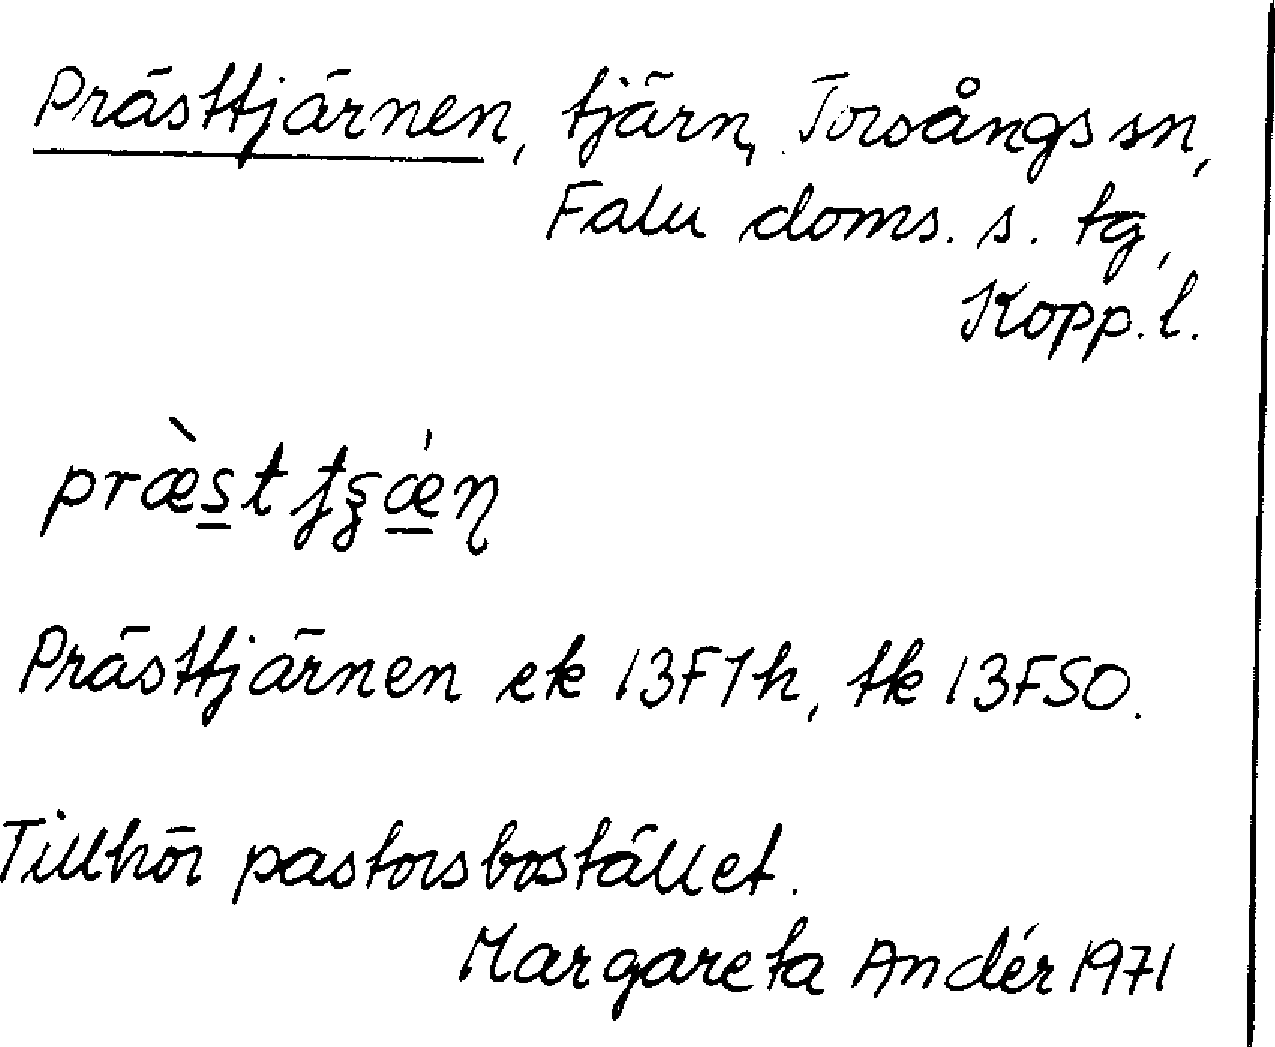 Prästtjärnen, tjärn, Torsångs sn,
Falu doms. s. tg,
Kopp. l.
Prästtjärnen ek 13F1h, tk 13F50.
Tillhör pastorsbostället.
Margareta Andér 1971